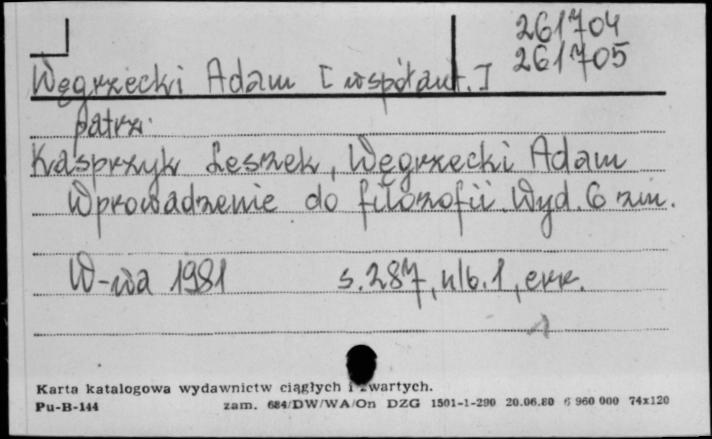 261704
261705
Węgrzecki Adam [współaut.]
patrz:
Kasprzyk Leszek, Węgrzecki Adam
Wprowadzenie do filozofii. Wyd. 6 zm.
W-wa 1981 s. 287, nlb. 1, err.
1
Karta katalogowa wydawnictw ciągłych i zwartych.
Pu-B-144 zam. 684/DW/WA/On DZG 1501-1-290 20.06.80 6 960 000 74x120